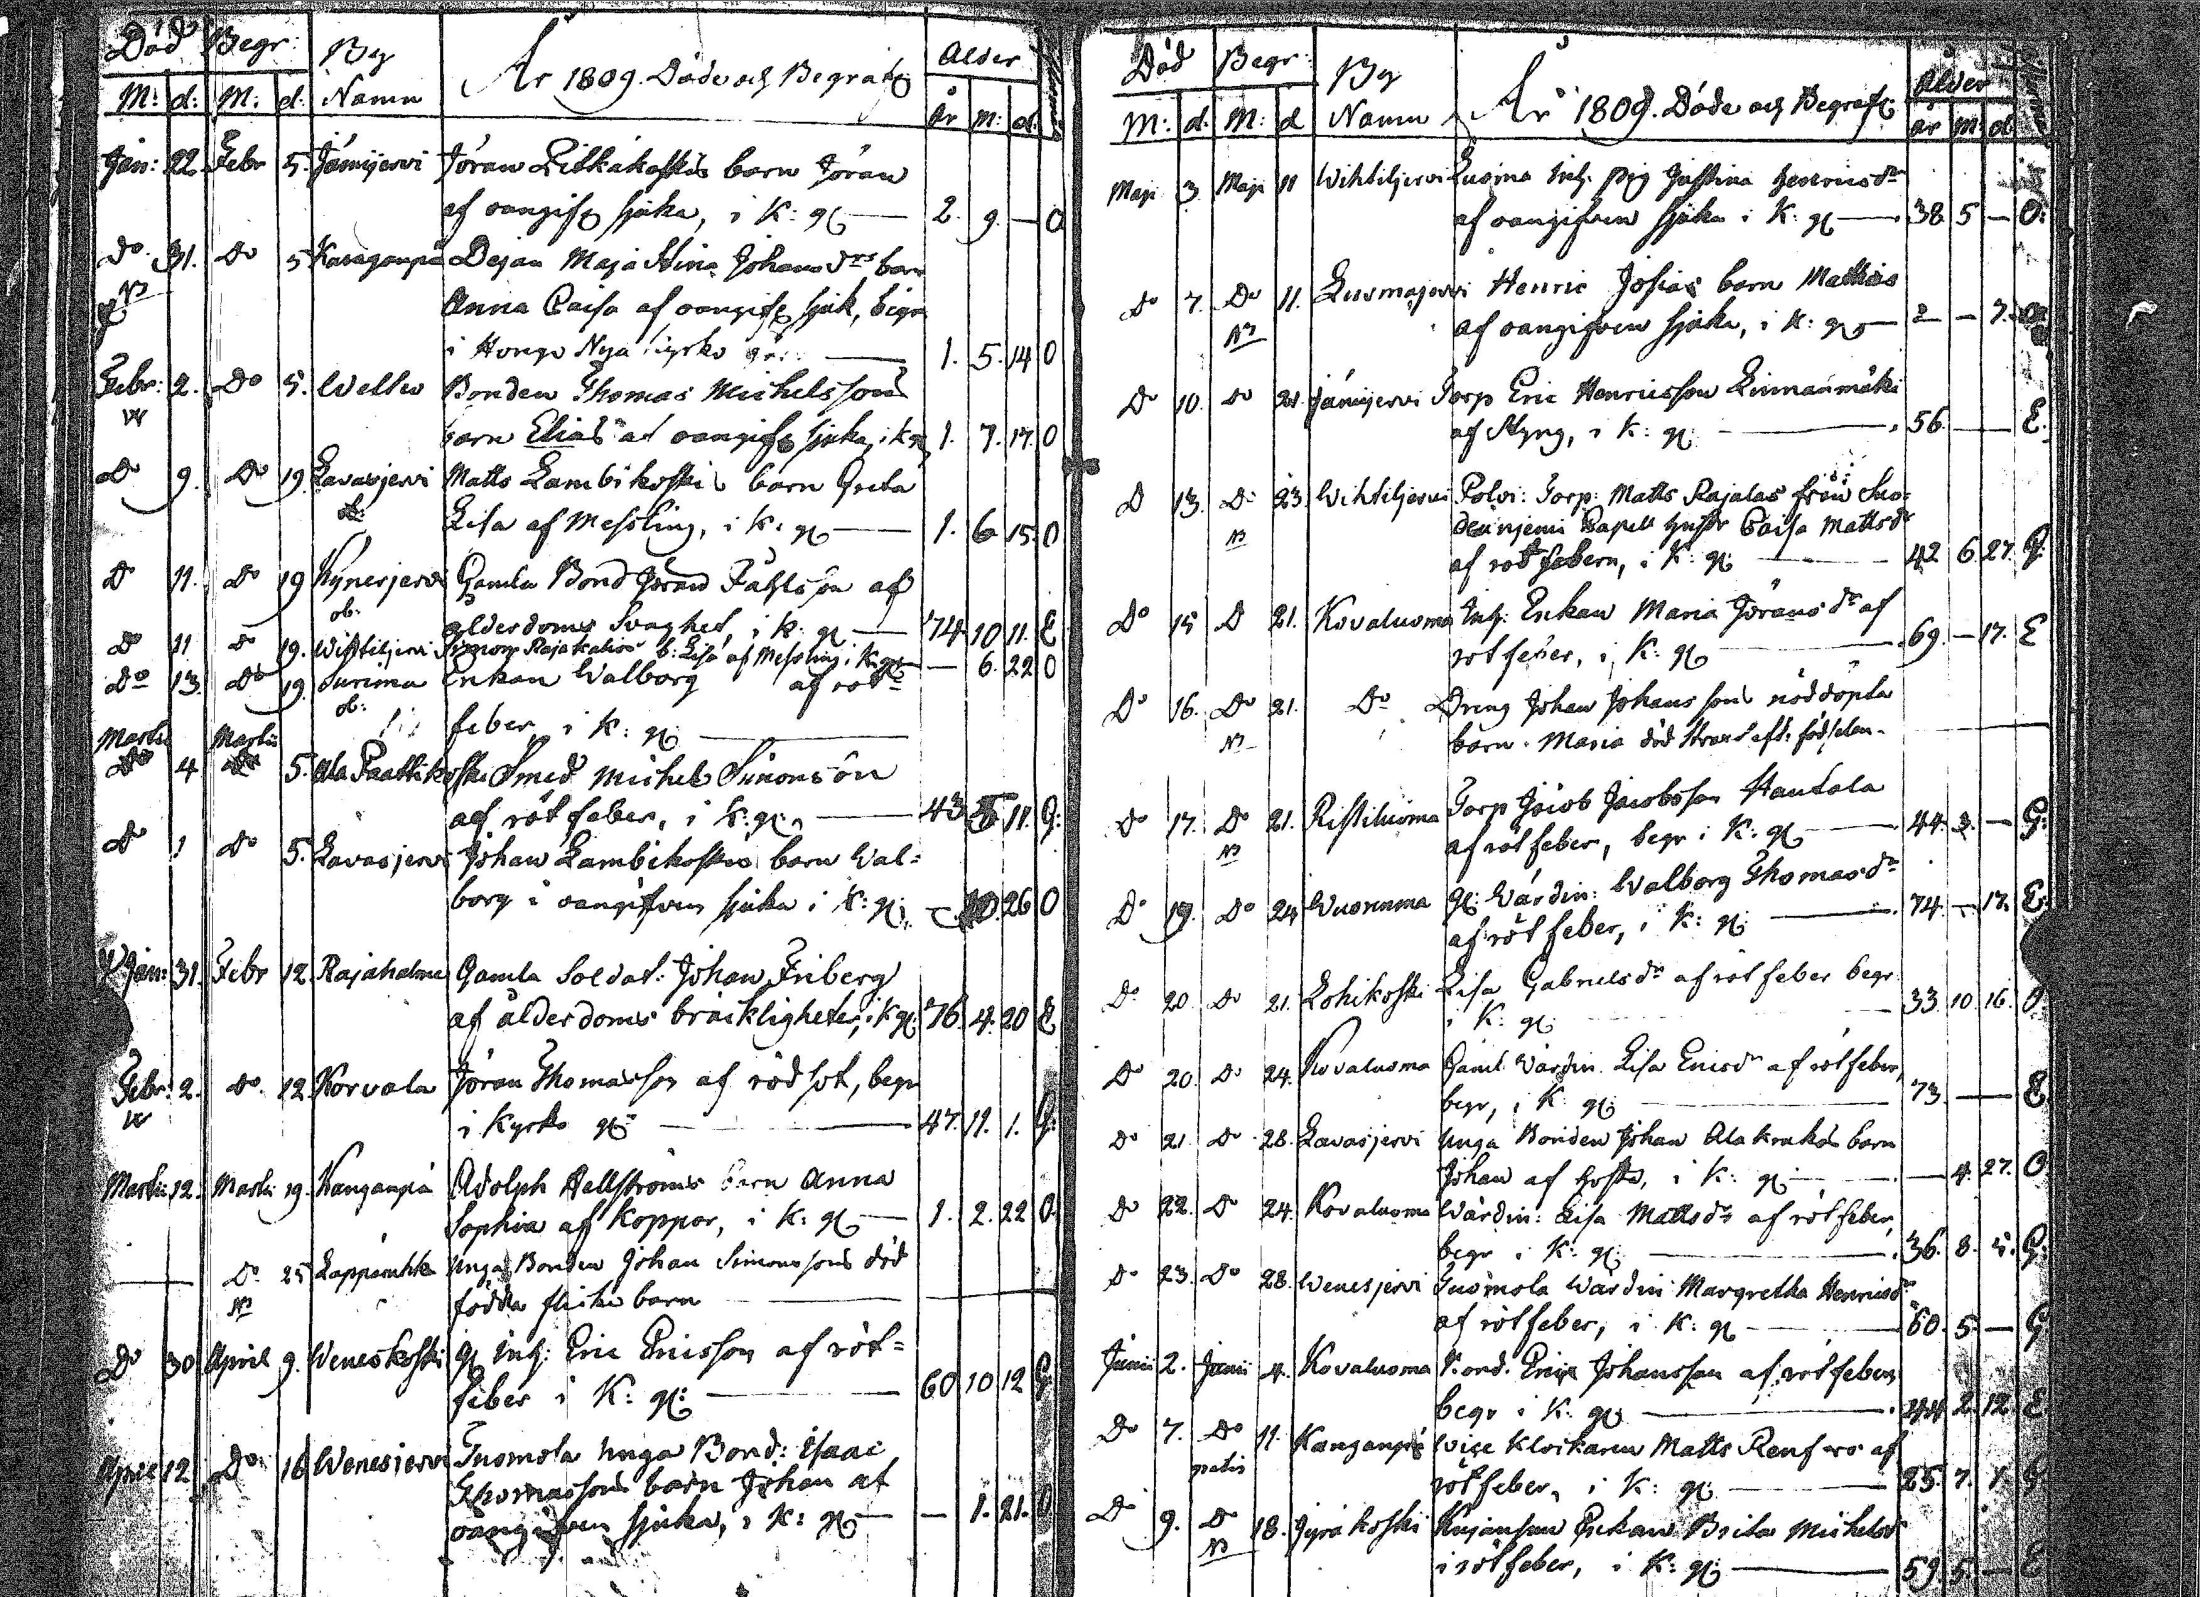 Död Begr: By År 1809. Döde och Begrafne Ålder
M: d: M: d: Namn År M: d:
Jan: 22. Febr 5. Jämijervi Jöran Pitkäkoskis barn Jöran
af oangifn sjuka, i K: g: — 2. 9. — O
Do 31. Do 5 Kangaspä Dejan Maja Stina Johansdrs barn
Anna Caisa af oangifn sjuk, begr
i Hongo Nya kyrko gr: — 1. 5. 14 O
Febr: 2. Do 5. Wellu Bonden Thomas Michelssons
barn Elias af oangifn sjuka, i k g 1. 7. 17. O
Do 9. Do 19. Lavasjervi Matts Lambikoskis barn Greta
ob:
Lisa af Messling, i K: g — 1. 6 15. O
Do 11. Do 19 Kynesjervi Gamla Bond Jöran Påhlsson af
ob:
ålderdoms Svaghet, i K: g — 74 10 11. E
Do 11 Do 19. Wihtiljervi Rajakalios b: Lisa af Messling i K: g — — 6. 22 O
Do 13. Do 19. Surima Enkan Walborg af röt=
ob:
feber, i K: g: —
Martii Martii
4 5. Ala Paattikoski Smed Michel Simonsson
af rötfeber, i K: g: — 43 11. G:
Do 1 Do 5. Lavasjervi Johan Lambikoskis barn Wal=
borg i oangifven sjuka i K: g: — 26 O
Jan: 31. Febr 12. Rajahalme Gamla Soldat: Johan Friberg
af ålderdoms bräckligheter, i K g: 76. 4. 20 E
Febr: 2. Do 12. Korvala Jöran Thomasson af rödsot, begr
i Kyrko g: — 47. 11. 1. G:
Martii 12. Martii 19. Kangaspä Adolph Hellströms barn Anna
Sophia af Koppor, i K: g — 1. 2. 22 O.
— Do 25 Lapparuhka Unga Bonden Johan Simonssons död
födda flicke barn —
Do 30 April 9. Weneskoski g Inh: Eric Ericsson af röt=
feber i K: g: — 60 10 12 G:
April 12 Do 16 Wenesjervi Tuomola unga Bond: Isaac
Thomassons barn Johan af
oangifven sjuka, i K: g — — 1. 21. O
Död Begr: By År 1809. Döde och Begrafn: Ålder
M: d: M: d Namn år M: d
Maji 3. Maji 11 Wihtiljervi Luoma Inh. pig Justina Henricsdr
af oangifven sjuka i K: g — 38 5 — O:
Do 7. Do 11. Luomajervi Henric Josias barn Mathias
af oangifven sjuka, i K: g — — 7.
Do 10. Do 21. Jämijervi Torp Eric Henricsson Linnanmäki
af Styng, i K: g: — 56. — E.
D 13. D: 23. Wihtiljervi Polvi: Torp: Matts Rajalas från Suo=
denniemi Capell hustr Caisa Mattsdr
af rötfebern, i K: g: — 42 6. 27. G:
Do 15 D 21. Kovaluoma Inh: Enkan Maria Jöransdr af
rotfeber, i K: g — 69. — 17. E
Do 16. Do 21. Do Dreng Johan Johanssons nöddöpta
barn Maria död strax eft: födselen. —
Do 17. Do 21. Ristiluoma Torp Jacob Jacobsson Hautala
af rötfeber, begr i K: g — 44. 3. — G:
Do 19. Do 24 Wuorenma g: Wärdin: Walborg Thomasdr
af rötfeber, i K: g: — 74. — 17. E:
Do 20. Do 21. Lohikoski Lisa Gabrielsdr af rötfeber begr
i K: g: — 33. 10. 16. O:
Do 20. Do 24. Kovaluoma Gaml Wärdin Lisa Ericsdr af rötfeber,
begr, i K: g: — 73. — E
Do 21. Do 28. Lavasjervi Unga Bonden Johan Alakrakas barn
Johan af hosta, i K: g: — — 4. 27. O
Do 22. Do 24. Kovaluoma Wärdin: Lisa Mattsdr af rötfeber,
begr i K: g: — 36. 8. 5. G:
Do 23. Do 28. Wenesjervi Tuomola Wärdin Margretha Henricsdr
af rötfeber, i K: g — 60. 5. — G
Junii 2. Junii 4. Kovaluoma Bond. Eric Johansson af rötfeber
begr i K: g — 44 2. 12. E
Do 7. Do 11. Kangaspä Wice Klockaren Matts Renfors af
gratis
rötfeber, i K: g: — 25. 7. 1. G
Do 9. Do 18. Jyräkoski Kujanpun Enkan Brita Michelsdr
i rötfeber, i K: g: — 59. 5. — E